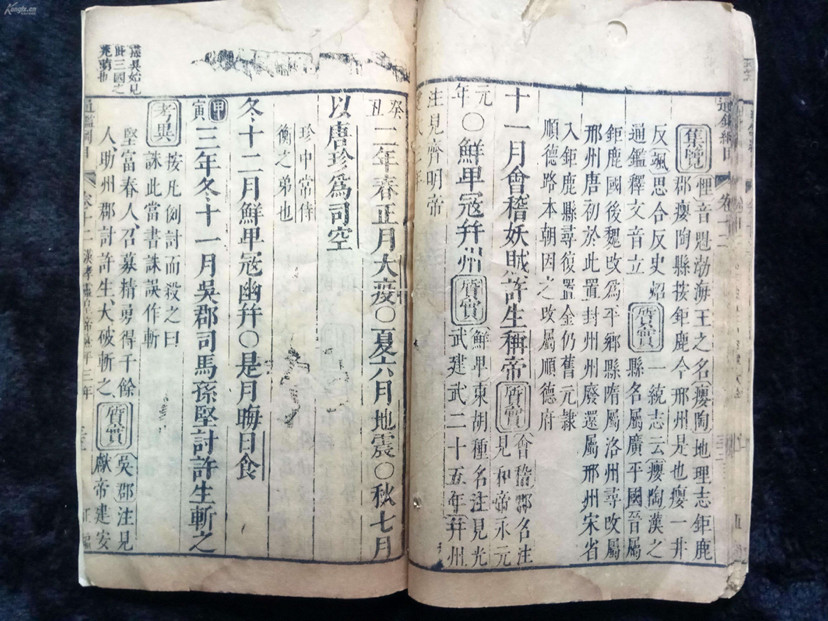 集覽 悝音恢勃海王之名癭陶地理志鉅鹿
郡癭陶縣按鉅鹿今邢州是也癭一井
反諷思合反史炤
通鑑釋文音立 質實 一統志云癭陶漢之
縣名屬廣平國晉屬
鉅鹿國後魏改爲平鄉縣隋屬洛州尋改屬
邢州唐初於此置封州州廢還屬邢州宋省
入鉅鹿縣尋復置金仍舊元隸
順德路本朝因之改屬順德府
十一月會稽妖賊許生稱帝 質實 會稽郡名注
見和帝永元
元年〇鮮卑寇幷州 質實 鮮卑東胡種名注見光
武建武二十五年幷州
注見齊明帝
通鑑綱目
癸丑 二年春正月大疫〇夏六月地震〇秋七月
以唐珍爲司空
珍中常侍
衡之弟也
冬十二月鮮卑寇幽幷〇是月晦日食
甲寅 三年冬十一月吳郡司馬孫堅討許生斬之
考異 按凡例討而殺之曰
誅此當書誅誤作斬
堅富春人召募精勇得千餘
人助州郡討許生大破斬之 質實 吳郡注見
獻帝建安
通鑑綱目 卷十二 漢孝靈皇帝熹平三年
孫堅始見
此三國之
Kongfz.cn